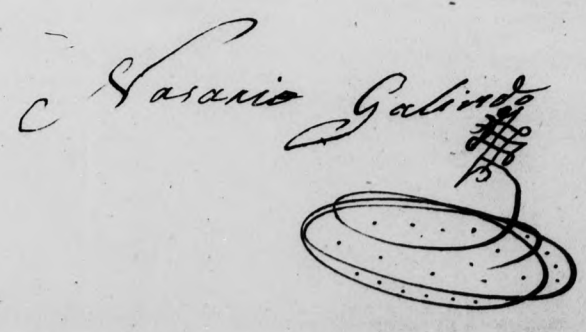 Nasario Galindo